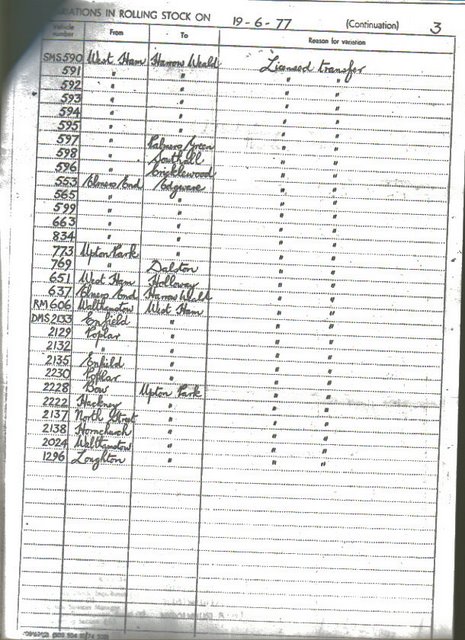 VARIATIONS IN ROLLING STOCK ON 19-6-77 (Continuation) 3
Vehicle number From To Reason for variation
SMS 590 West Ham Harrow Weald Licensed transfer
591 " " " "
592 " " " "
593 " " " "
594 " " " "
595 " " " "
597 " Palmers Green " "
598 " Southall " "
596 " Cricklewood " "
553 Elmers End Edgware " "
565 " " " "
599 " " " "
663 " " " "
834 " " " "
773 Upton Park " " "
769 " Dalston " "
651 West Ham Holloway " "
637 Elmers End Harrow Weald " "
RM 606 Walthamstow West Ham " "
DMS 2133 Enfield " " "
2129 Poplar " " "
2132 " " " "
2135 Enfield " " "
2230 Poplar " " "
2228 Bow Upton Park " "
2222 Hackney " " "
2137 North Street " " "
2138 Hornchurch " " "
2024 Walthamstow " " "
1296 Loughton " " "